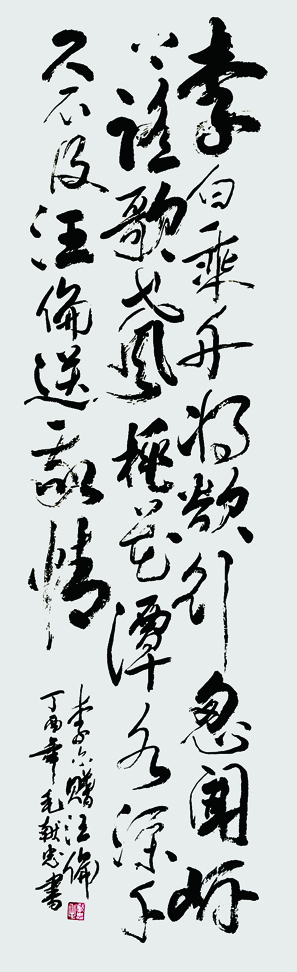 李白乘舟将欲行忽闻岸
上踏歌声桃花潭水深千
尺不及汪倫送我情
李白赠汪倫
丁酉年毛献忠書